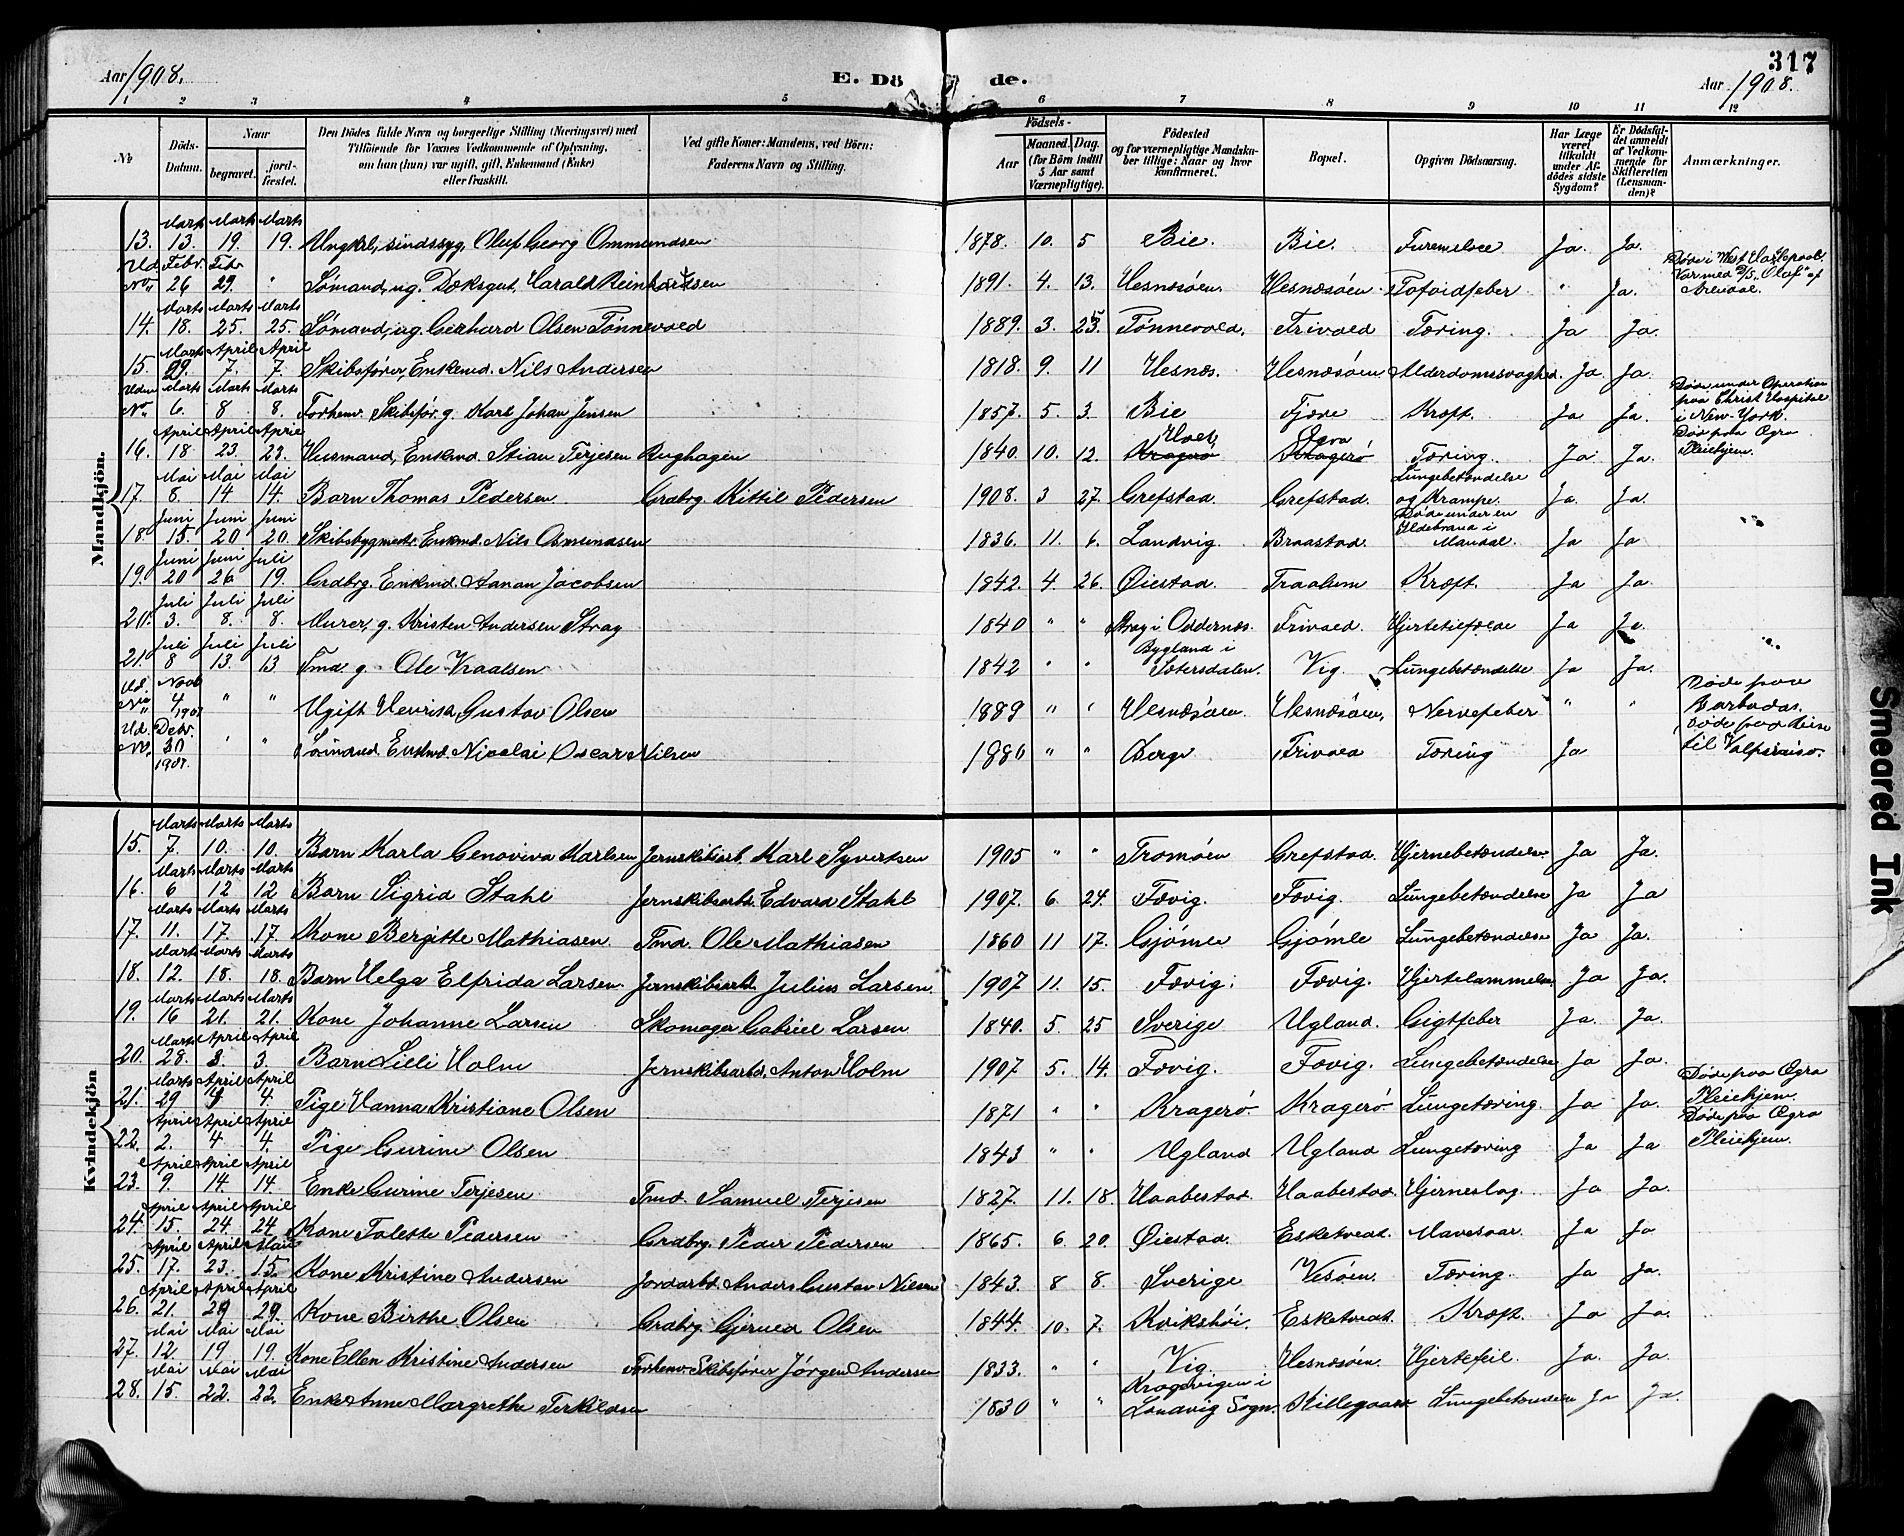 317
Aar 1908. E. Dö de. Aar 1908.
1 2 3 4 5 6 7 8 9 10 11 12
No Döds-Datum. Naar begravet. jord-fæstet. Den Dödes fulde Navn og borgerlige Stilling (Næringsvei) med Tilföiende for Voxnes Vedkommende af Oplysning, om han (hun) var ugift, gift, Enkemand (Enke) eller fraskilt. Ved gifte Koner: Mandens, ved Börn: Faderens Navn og Stilling. Födsels- Aar Maaned. Dag. (for Börn indtil 5 Aar samt Værnepligtige). Födested og for værnepligtige Mandskaber tillige: Naar og hvor konfirmeret. Bopæl. Opgiven Dödsaarsag. Har Læge været tilkaldt under Afdödes sidste Sygdom? Er Dödsfaldet anmeldt af Vedkommende for Skifteretten (Lensmanden)? Anmærkninger.
Mandkjön.
13. Marts 13. Marts 19. Marts 19. Ungkrl, sindssyg, Oluf Georg Ommundsen 1878. 10. 5 Bie. Bie. Ja. Ja.
Ud. No. Febr. 26 Febr 29. " Sømand, ug. Dæksgut, Harald Reinhartsen 1891. 4. 13. Hesnæsøen. Hesnæsøen Tofoidfeber " Ja. Døde i West Hartlepool. Var med D/S. "Oluf" af Arendal.
14. Marts 18. Marts 25. Marts 25. Sømand, ug. Gerhard Olsen Tønnevold 1889. 3. 25. Tønnevold. Frivold Tæring. Ja Ja.
15. Marts 29. April 7. April 7. Skibsfører, Enkemd. Nils Andersen 1818. 9. 11 Hesnæs. Hesnæsøen Alderdomssvaghed. Ja Ja.
Uden No. Marts 6. Marts 8 Marts 8. Forhenv. Skibsfør. g. Karl Johan Jensen 1857. 5. 3. Bie Fjære Kræft. Ja Ja. Døde under Operation paa Christ Hospital i New-York.
16. April 18 April 23. April 23. Husmand, Enkmd. Stian Terjesen Rughagen 1840. 10. 12. Kragerø Kragerø Tæring. Ja Ja. Døde paa Øgra Pleiehjem.
17. Mai 8. Mai 14 Mai 14. Barn Thomas Pedersen Grdbrg. Kittil Pedersen 1908. 3 27. Grefstad. Grefstad. Lungebetændelse og Krampe. Ja. Ja.
18. Juni 15. Juni 20 Juni 20. Skibsbygmestr. Enkmd. Nils Osmundsen 1836. 11. 6. Landvig. Braastad. Døde under en Ildebrand i Mandal. Ja Ja
19. Juni 20 Juni 26. Juli 19. Grdbrg. Enkmd. Aanon Jacobsen 1842. 4 26. Øiestad. Traalum Kræft Ja Ja.
20. Juli 3. Juli 8. Juli 8. Murer, g. Kristen Andersen Strag 1840 " " Strag i Oddernæs. Frivold. Hjertetilfælde Ja Ja.
21. Juli 8 Juli 13. Juli 13 Tmd g. Ole Vraalsen 1842 " " Bygland i Sætersdalen. Vig. Lungebetændelse Ja Ja.
Ud. No. Novb 4 1907 " " Ugift Henrisk Gustav Olsen 1889 " " Hesnæsøen. Hesnæsøen. Nervefeber " " Døde paa Barbados.
Ud. No. Debr. 30 1907. " " Sømand. Enkmd. Nicolai Oscar Nilsen 1880 " " Berge Frivold Tæring Ja Døde paa Reise til Valparaiso.
Kvindekjön
15. Marts 7. Marts 10. Marts 10. Barn Karla Genoviva Karlsen Jernskibsarb. Karl Syvertsen 1905 " " Tromøen Grefstad. Hjernebetændelse Ja Ja.
16. Marts 6 Marts 12 Marts 12 Barn Sigrid Stahl Jernskibsarbd. Edvard Stahl 1907. 6. 24. Fævig. Fævig. Lungebetændelse Ja Ja
17. Marts 11. Marts 17. Marts 17 Kone Bergitte Mathiasen Tmd. Ole Mathiasen 1860 11 17. Gjømle Gjømle Lungebetændelse Ja Ja.
18. Marts 12. Marts 18. Marts 18. Barn Helga Elfrida Larsen. Jernskibsarbd. Julius Larsen. 1907 11. 15. Fævig. Fævig. Hjertelammelse. Ja Ja.
19. Marts 16 Marts 21. Marts 21. Kone Johanne Larsen Skomager Gabriel Larsen. 1840. 5 25 Sverige Ugland. Gigtfeber Ja. Ja.
20. Marts 28. April 3. April 3. Barn Lilli Holm Jernskibsarbd. Anton Holm 1907 5. 14. Fævig. Fævig. Lungebetændelse Ja Ja.
21. Marts 29 April 4 April 4. Pige Hanna Kristiane Olsen 1871 " " Kragerø Kragerø Lungetæring. Ja Ja. Døde paa Øgra Pleiehjem.
22. April 2. April 4. April 4. Pige Gurine Olsen 1843 " " Ugland Ugland Lungetæring Ja Ja Døde paa Øgra Pleiehjem.
23. April 9 April 14 April 14. Enke Gurine Terjesen Tmd. Samuel Terjesen 1827. 11. 18. Haabestad. Haabestad. Hjerneslag. Ja Ja.
24. April 15. April 24 April 24 Kone Taleste Pedersen Grdbrg. Peder Pedersen 1865. 6 20. Øiestad. Esketvedt. Mavesaar. Ja Ja
25. April 17. April 23. Mai 15. Kone Kristine Andersen Jordarbd. Anders Gustav Nilsen 1843. 8 8. Sverige Vesøen. Tæring. Ja Ja.
26. April 21. April 29 April 29. Kone Birthe Olsen Grdbrg. Gjerued Olsen 1844. 10. 7. Kvikshöi. Esketvedt. Kræft. Ja Ja.
27. Mai 12. Mai 19 Mai 19. Kone Ellen Kristine Andersen Forhenv. Skibsfører Jørgen Andersen 1833. " " Vig. Hesnæsøen. Hjertefeil. Ja. Ja.
28. Mai 15. Mai 22. Mai 22. Enke Anne Margrethe Terkildsen 1830 " " Kragevigen i Landvig Sogn. Killegaard Lungebetændelse Ja Ja.
Smeared Ink